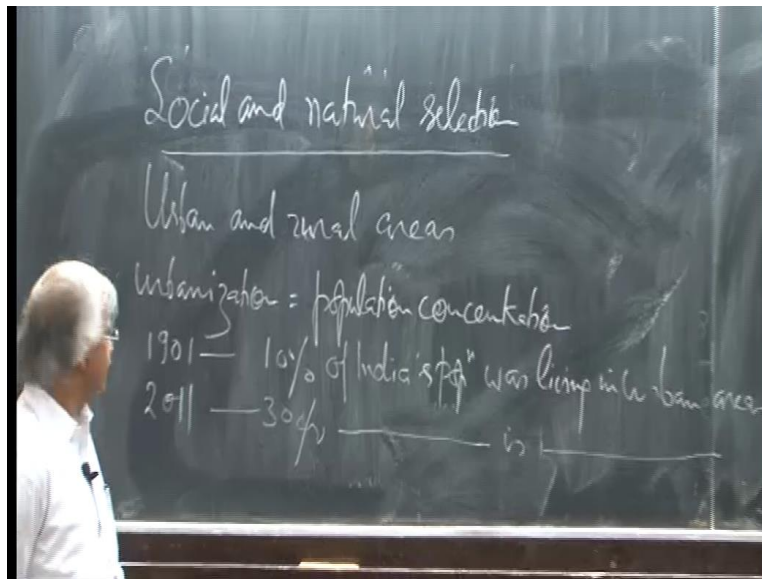 Social and natural selection
Urban and rural areas
Urbanization = population concentration
1901 — 10% of India's popⁿ was living in urban areas
2011 — 30% ———— is ————